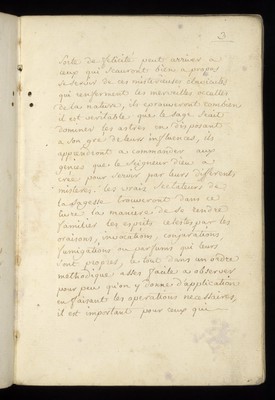 3
sorte de felicité peut arriver a
ceux qui sçauront bien a propos
se servir de ces misterieuses clavicules
qui renferment les merveilles occultes
de la nature, ils eprouveront combien
il est veritable que le sage peut
dominer les astres en disposant
a son gré de leurs influences, ils
apprendront a commander aux
genies que le Seigneur dieu a
créé pour servir par leurs differents
misteres. les vrais sectateurs de
la sagesse trouveront dans ce
livre la maniere de se rendre
familier les esprits celestes par les
oraisons, invocations, conjurations
fumigations ou parfums qui leurs
sont propres, le tout dans un ordre
methodique asses facile a observer
pour peu qu'on y donne d'application
en faisant les operations necessaires,
il est important pour ceux que